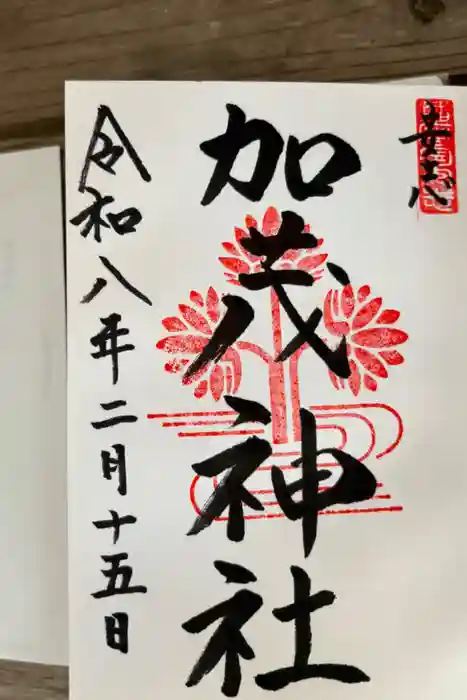 安志
加茂神社
令和八年二月十五日